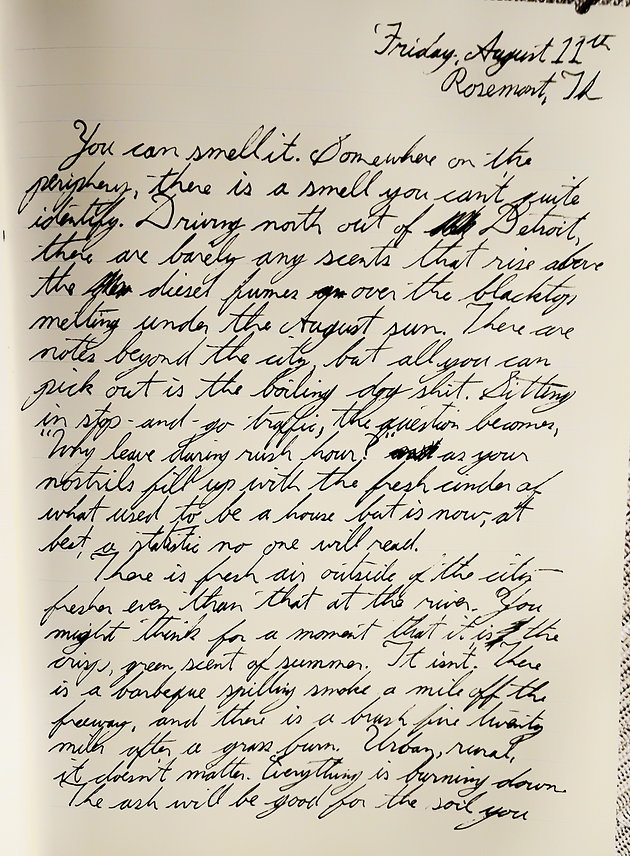 Friday, August 11th
Rosemont, IL
You can smell it. Somewhere on the
periphery, there is a smell you can't quite
identify. Driving north out of Detroit,
there are barely any scents that rise above
the diesel fumes over the blacktop
melting under the August sun. There are
notes beyond the city, but all you can
pick out is the boiling dog shit. Sitting
in stop-and-go traffic, the question becomes,
"Why leave during rush hour?" as your
nostrils fill up with the fresh cinder of
what used to be a house but is now, at
best, a statistic no one will read.
There is fresh air outside of the city
fresher even than that at the river. You
might think for a moment that it is the
crisp, green scent of summer. It isn't. There
is a barbeque spilling smoke a mile off the
freeway, and there is a brush fire twenty
miles after a grass burn. Urban, rural,
it doesn't matter. Everything is burning down.
The ash will be good for the soil, you